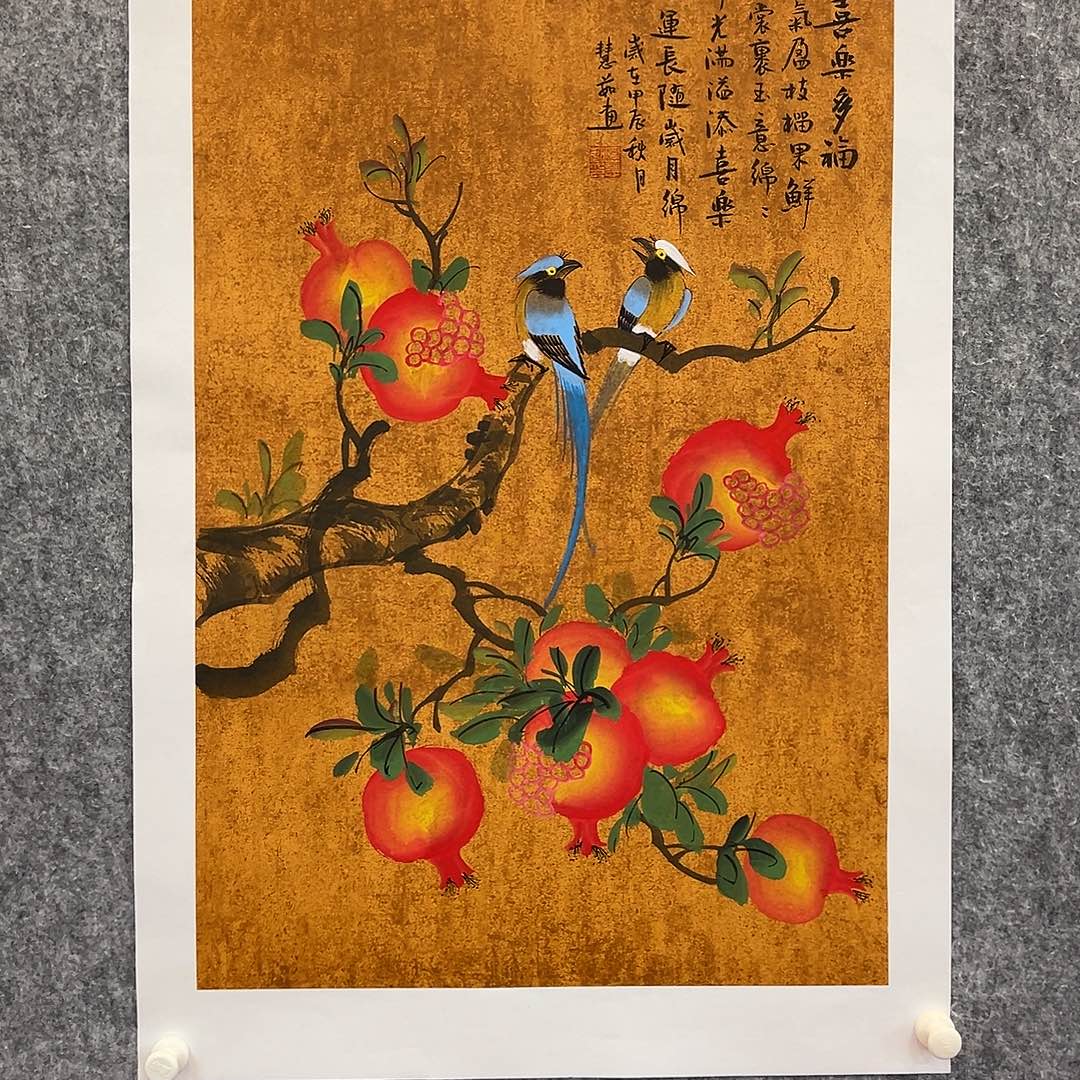 喜樂多福
氣盈枝榴果鮮
裳裹玉意綿〻
光滿溢添喜樂
運長隨歲月綿
歲在甲辰秋月
慧茹画